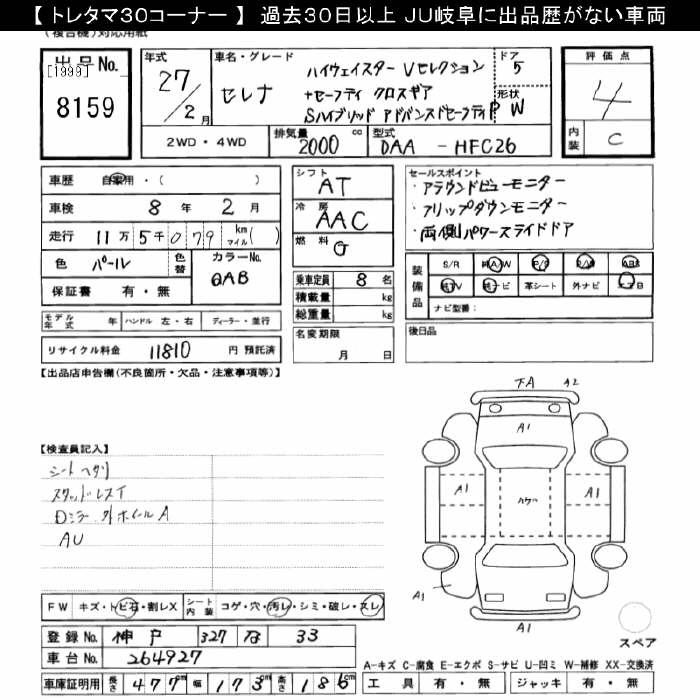 【 トレタマ30コーナー 】 過去30日以上 JU岐阜に出品歴がない車両
(複合機)対応用紙
出品No.
[1999]
8159
年式 27/2月
車名・グレード セレナ
ハイウェイスター Vセレクション
+セーフティ クロスギア
Sハイブリッド アドバンスドセーフティP
ドア 5
形状 W
評価点 4
内装 C
2WD・4WD
排気量 2000 cc
型式 DAA - HFC26
車歴 自家用・( )
車検 8年 2月
走行 11万 5千 079 km マイル( )
色 パール 色替 カラーNo. QAB
保証書 有・無
モデル年式 年 ハンドル 左・右 ディーラー・並行
リサイクル料金 11810 円 預託済
シフト AT
冷房 AAC
燃料 G
乗車定員 8 名
積載量 kg
総重量 kg
名変期限 月 日
セールスポイント
・アラウンドビューモニター
・フリップダウンモニター
・両側パワースライドドア
装備品 S/R 純A/W P/S P/W ABS
純TV 純ナビ 革シート 外ナビ エアB
ナビ型番:
後日品
【出品店申告欄(不良箇所・欠品・注意事項等)】
【検査員記入】
シートヘタリ
スタッドレスT
Dミラー 外ホイールA
AU
A2
A1
A1
A1
A1
A1
スペア
FW キズ・トビ石・割レX シート内装 コゲ・穴・汚レ・シミ・破レ・スレ
登録No. 神戸 327 な 33
車台No. 264927
車庫証明用 長さ 477cm 幅 173cm 高さ 186cm
A-キズ C-腐食 E-エクボ S-サビ U-凹ミ W-補修 XX-交換済
工具 有・無 ジャッキ 有・無